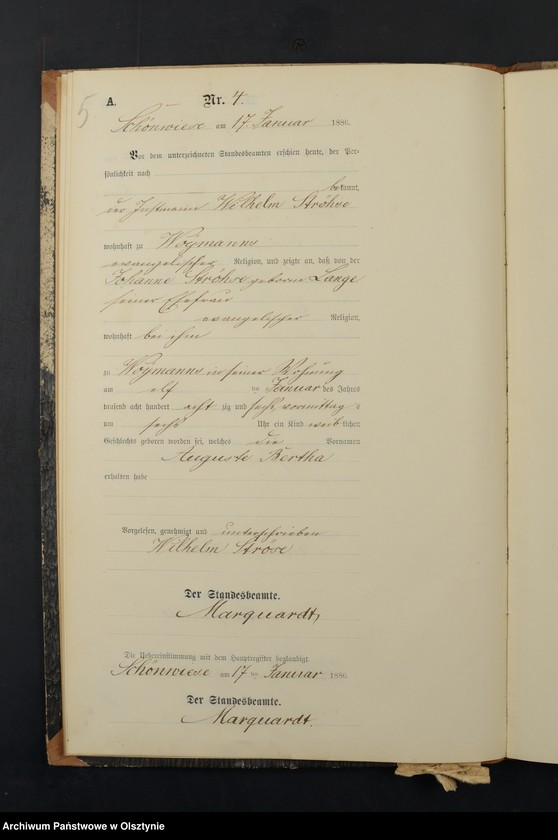 5
A. Nr. 4.
Schönwiese am 17. Januar 1886.
Vor dem unterzeichneten Standesbeamten erschien heute, der Per-
sönlichkeit nach
bekannt,
der Instmann Wilhelm Ströhse
wohnhaft zu Woymanns
evangelischer Religion, und zeigte an, daß von der
Johanne Ströhse geborene Lange
seiner Ehefrau
evangelischer Religion,
wohnhaft bei ihm
zu Woymanns in seiner Wohnung
am elf ten Januar des Jahres
tausend acht hundert acht zig und sechs vormittag s
um sechs Uhr ein Kind weib lichen
Geschlechts geboren worden sei, welches die Vornamen
Auguste Bertha
erhalten habe
Vorgelesen, genehmigt und unterschrieben
Wilhelm Ströse
Der Standesbeamte.
Marquardt,
Die Uebereinstimmung mit dem Hauptregister beglaubigt
Schönwiese am 17 ten Januar 1886
Der Standesbeamte.
Marquardt.
Archiwum Państwowe w Olsztynie